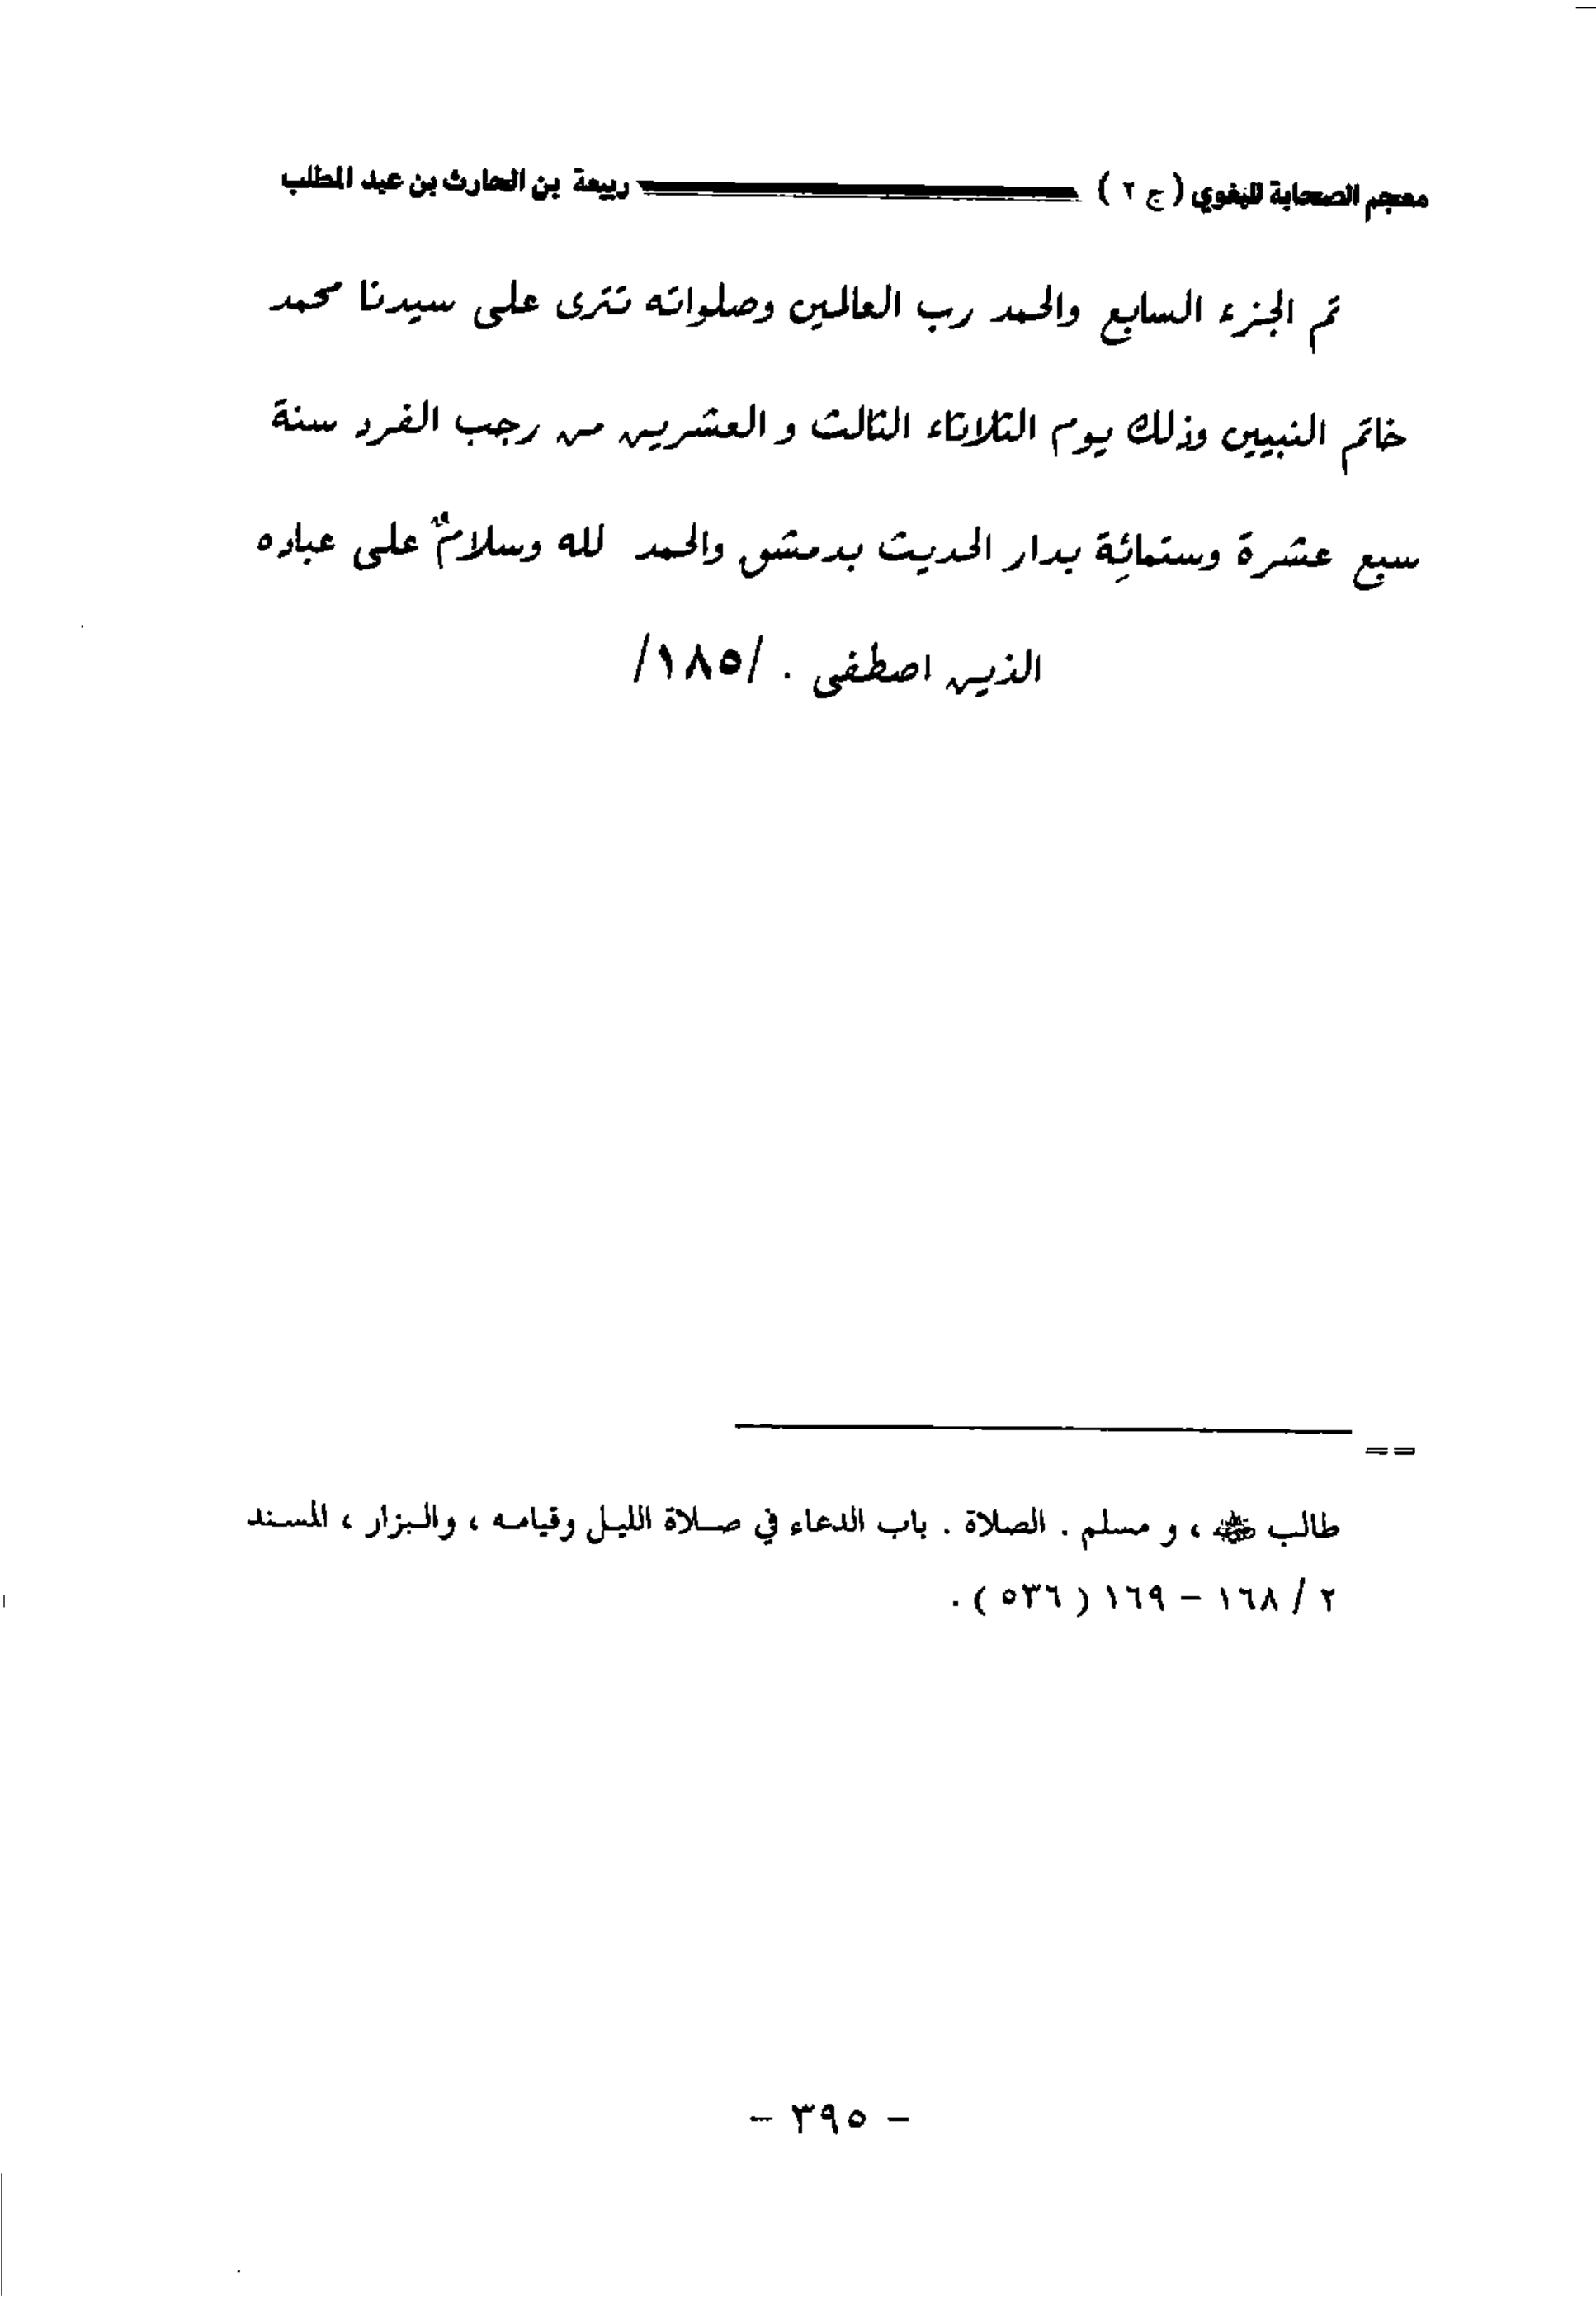 معجم الصحابة للبغوي ( ج ٢ ) ربيعة بن الحارث بن عبد المطلب
تم الجزء السابع والحمد رب العالمين وصلواته تترى على سيدنا محمد
خاتم النبيين وذلك يوم الثلاثاء الثالث و العشرين من رجب الفرد سنة
سبع عشرة وستمائِة بدار الحديث بدمشق والحمد لله وسلامٌ على عباده
الذين اصطفى . /١٨٥/
==
طالب ﵁ ، و مسلم . الصلاة . باب الدعاء في صلاة الليل وقيامه ، والبزار ، المسند
٢ / ١٦٨ – ١٦٩ ( ٥٣٦ ) .
– ٣٩٥ –